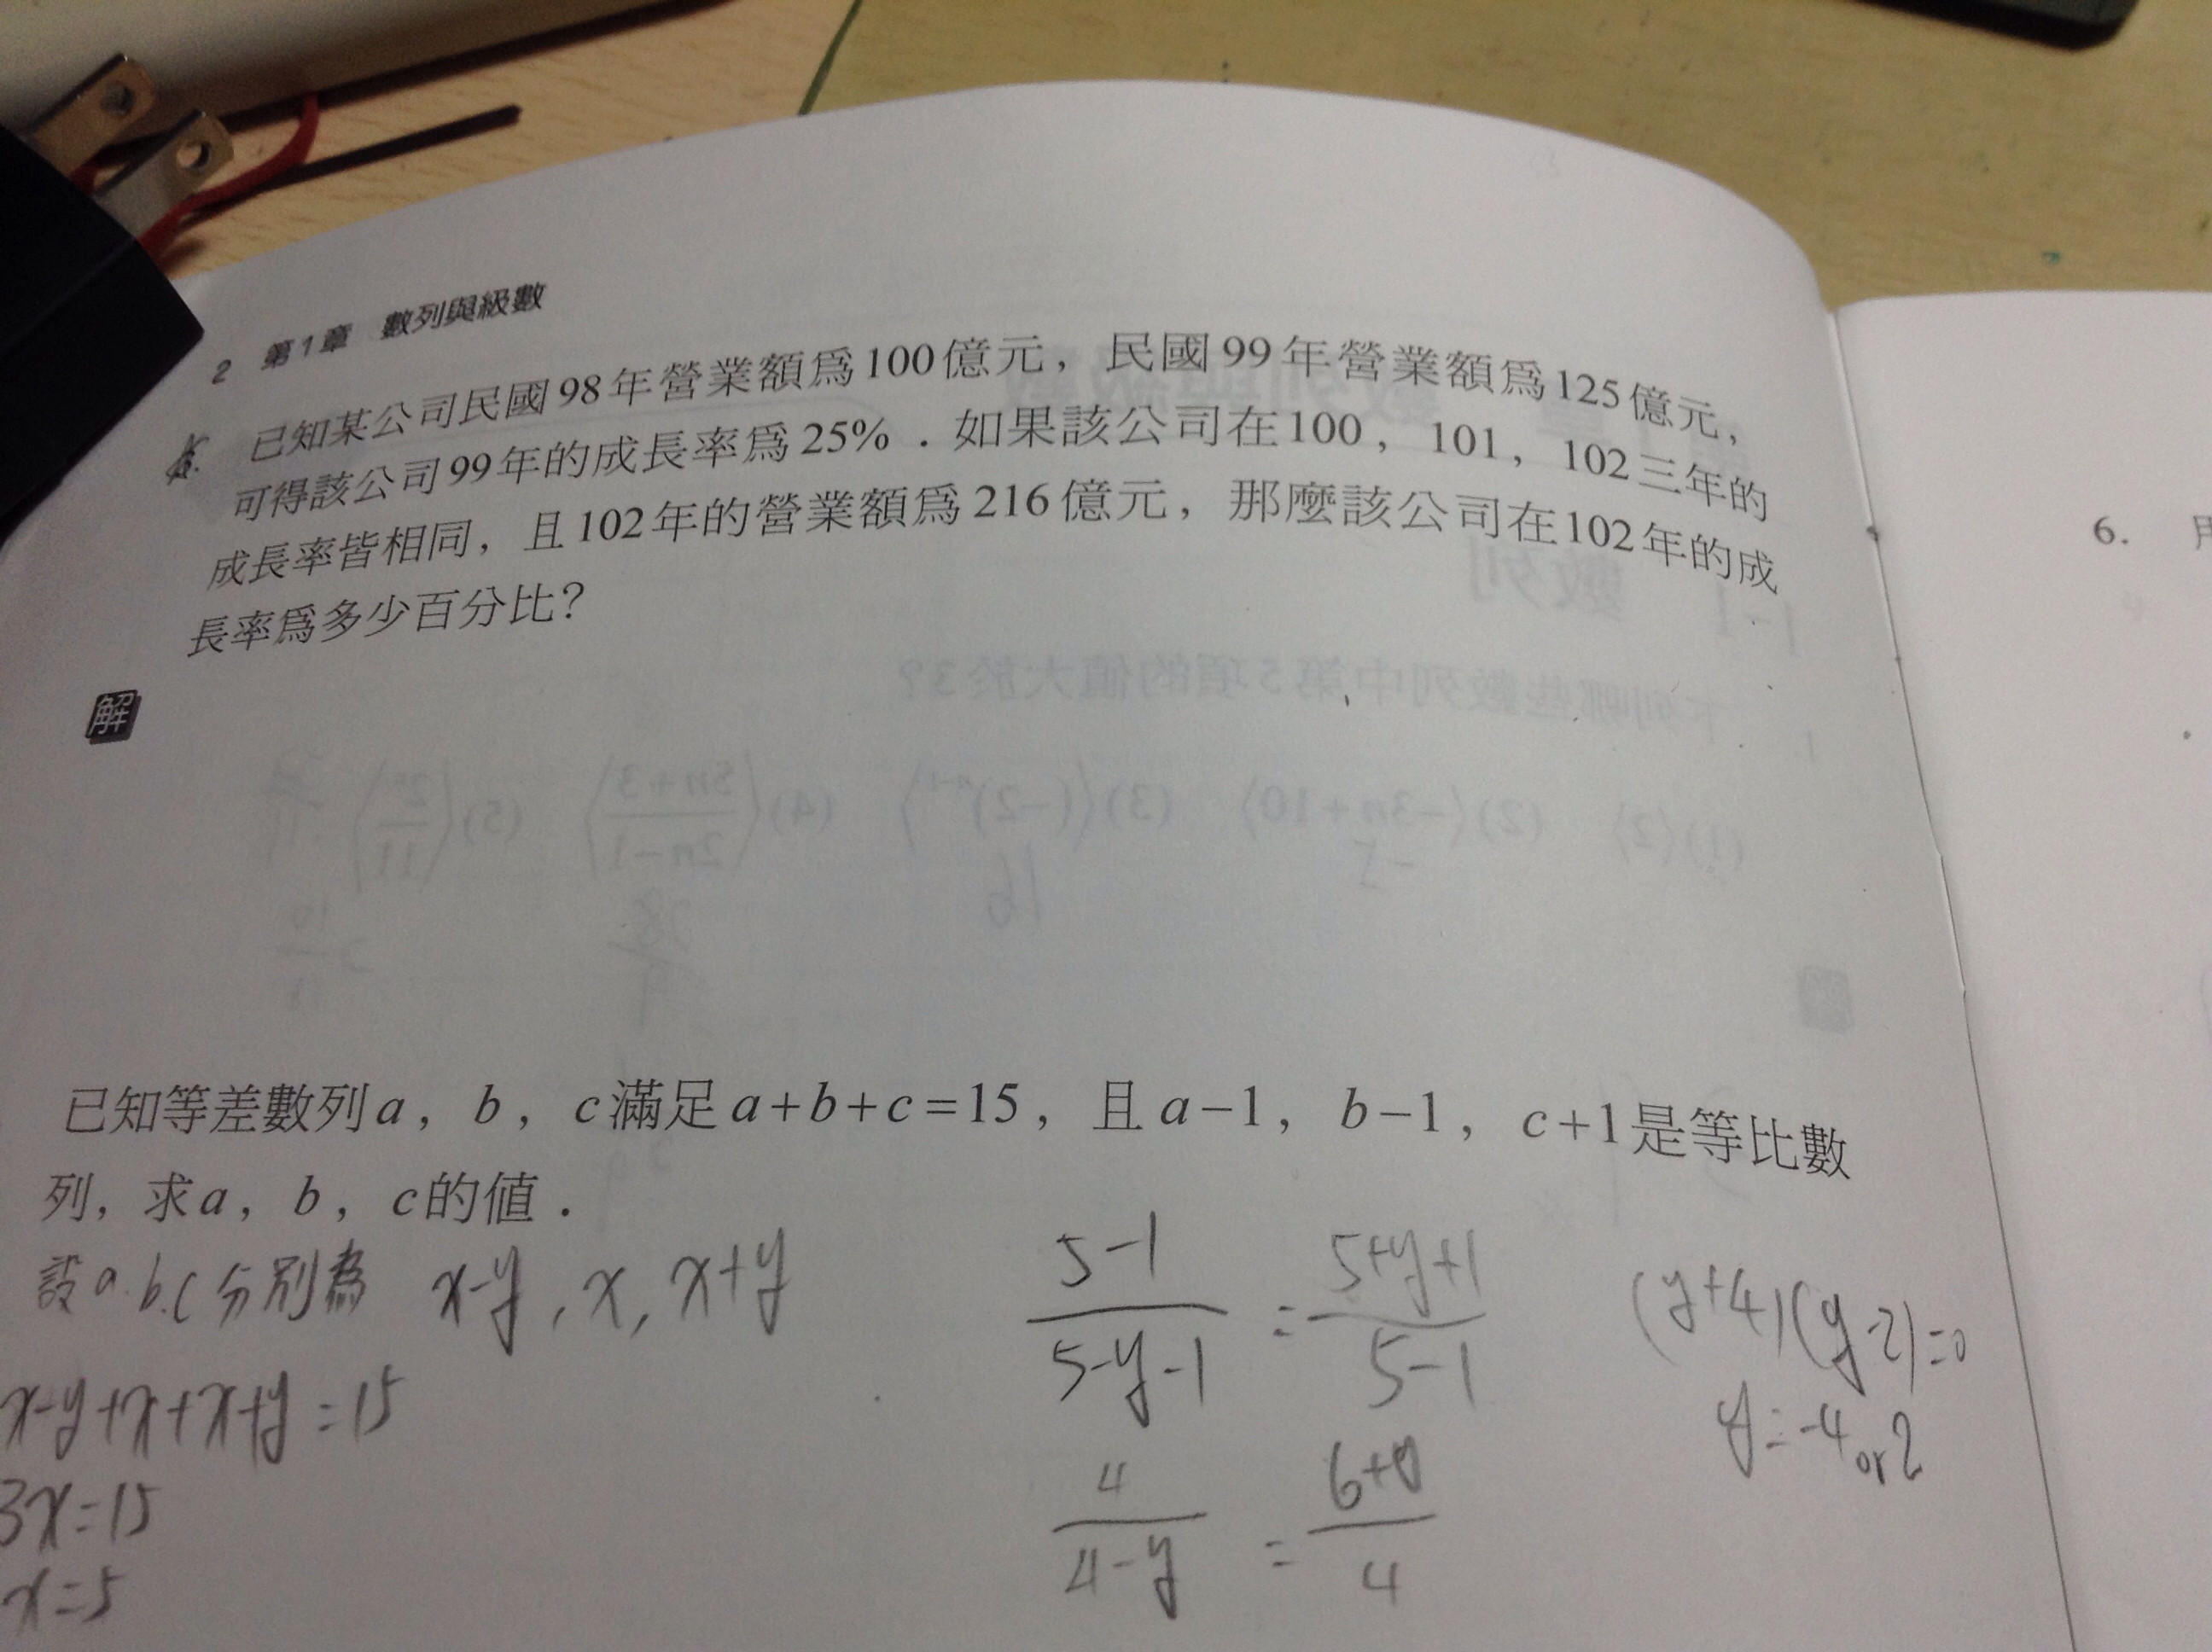 2 第1章 數列與級數
已知某公司民國98年營業額為100億元，民國99年營業額為125億元，
可得該公司99年的成長率為25%．如果該公司在100，101，102三年的
成長率皆相同，且102年的營業額為216億元，那麼該公司在102年的成
長率為多少百分比？
解
6.
已知等差數列a，b，c滿足a+b+c=15，且a−1，b−1，c+1是等比數
列，求a，b，c的值．
設a.b.c分別為 x-y, x, x+y
x-y+x+x+y=15
3x=15
x=5
5-1 / 5-y-1 = 5+y+1 / 5-1
4 / 4-y = 6+y / 4
(y+4)(y-2)=0
y=-4 or 2